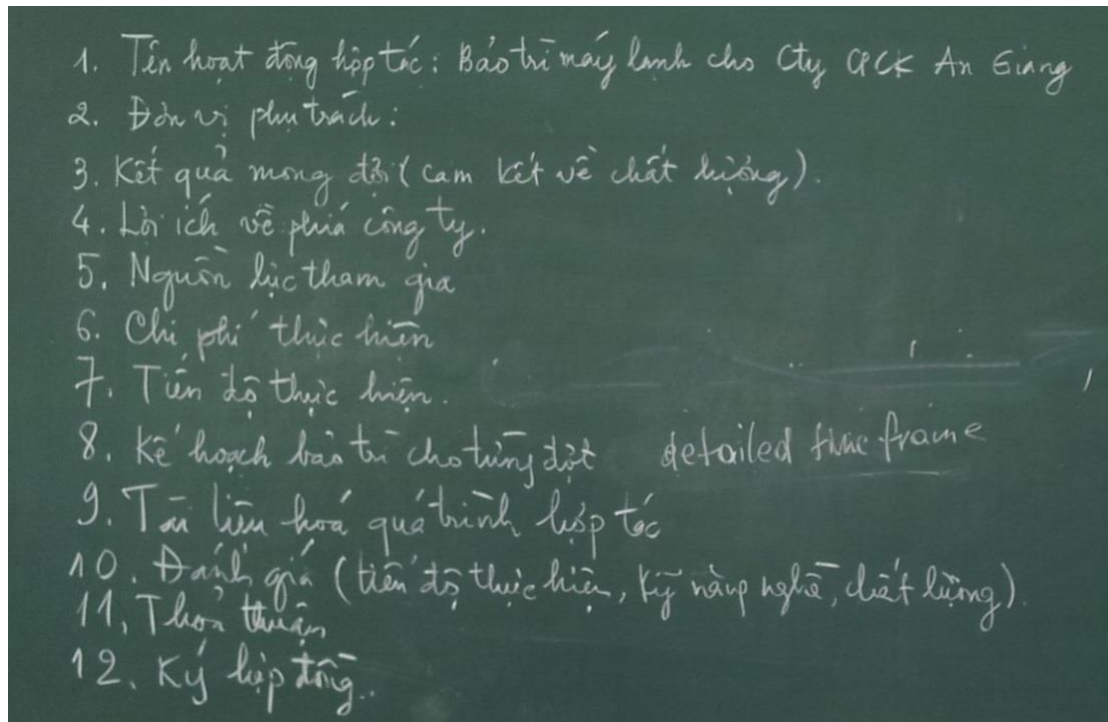 1. Tên hoạt động hợp tác: Bảo trì máy lạnh cho Cty CPCK An Giang
2. Đơn vị phụ trách:
3. Kết quả mong đợi (cam kết về chất lượng).
4. Lợi ích về phía công ty.
5. Nguồn lực tham gia
6. Chi phí thực hiện
7. Tiến độ thực hiện.
8. Kế hoạch bảo trì cho từng đợt detailed time frame
9. Tài liệu hoá quá trình hợp tác
10. Đánh giá (tiến độ thực hiện, kỹ năng nghề, chất lượng).
11. Thoả thuận
12. Ký hợp đồng..